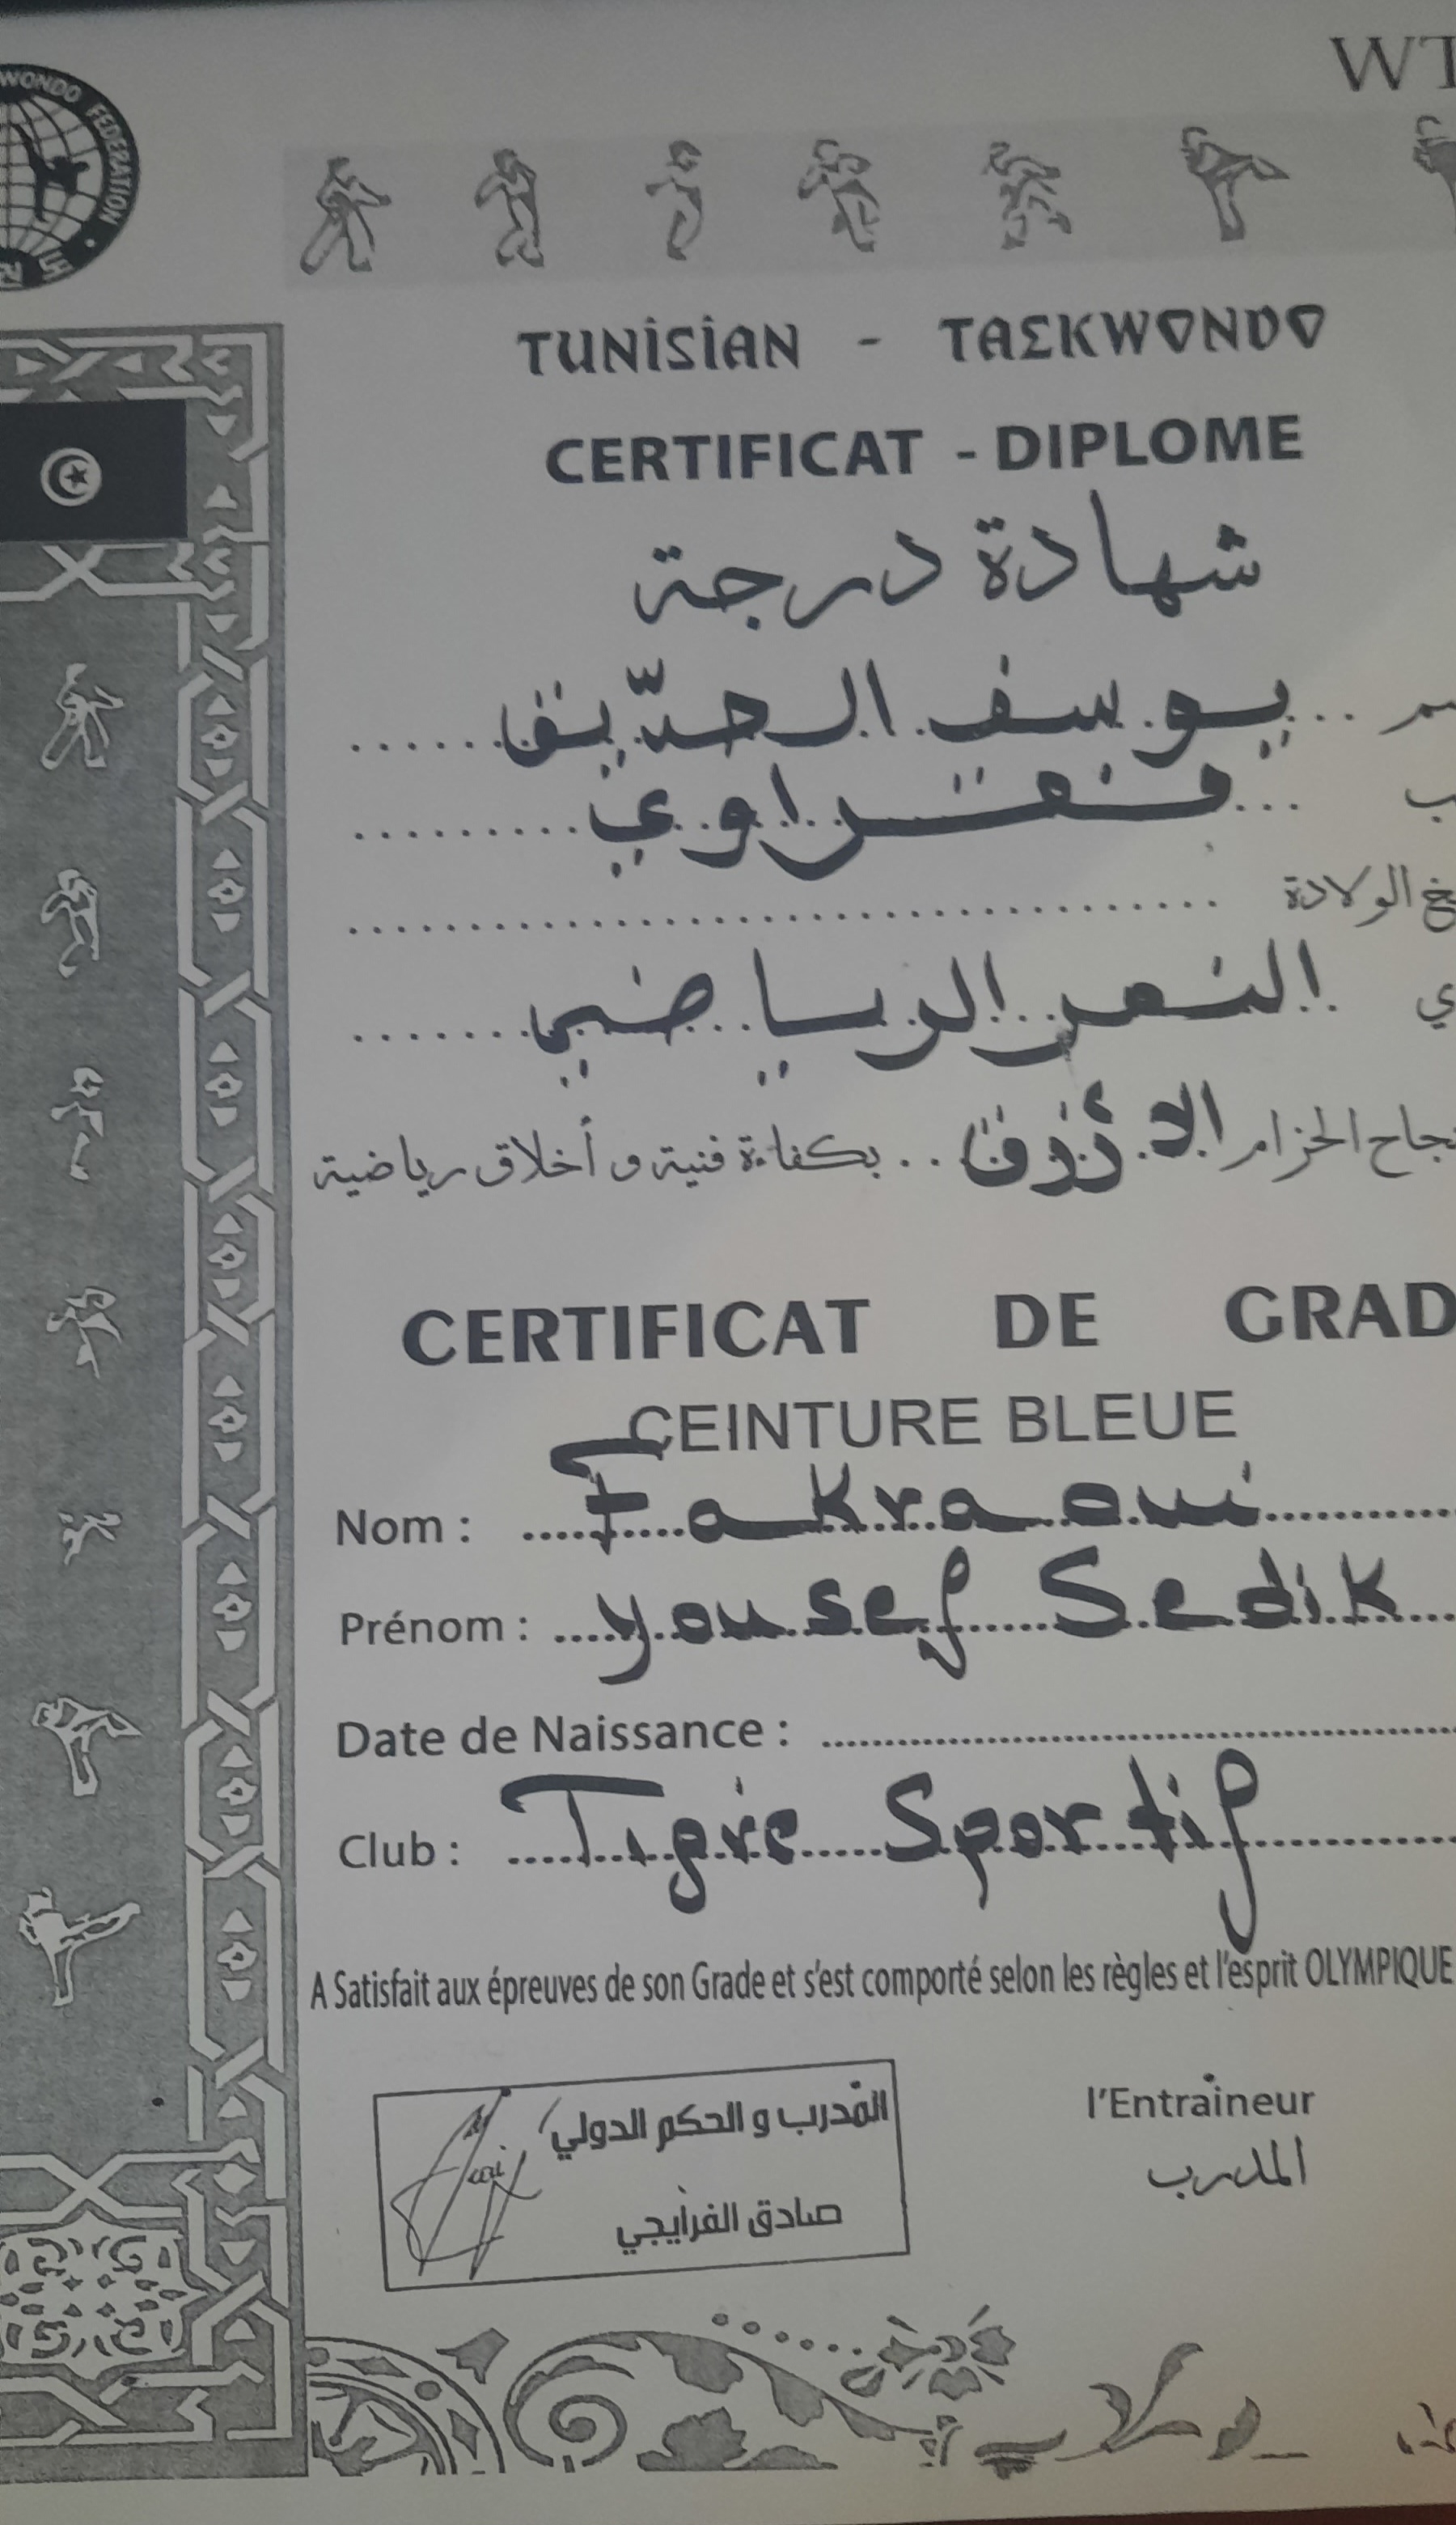 WT
WONDO FEDERATION
TUNISIAN - TAEKWONDO
CERTIFICAT - DIPLOME
شهادة درجة
يوسف الصدّيق
فقراوي
الولادة
النمر الرياضي
الحزام الأزرق .. بكفاءة فنية و أخلاق رياضية
CERTIFICAT DE GRAD
CEINTURE BLEUE
Nom : Fakraoui
Prénom : Yousef Sedik
Date de Naissance :
Club : Tigre Sportif
A Satisfait aux épreuves de son Grade et s'est comporté selon les règles et l'esprit OLYMPIQUE
l'Entraineur
المدرب
المدرب و الحكم الدولي
صادق الفرايجي